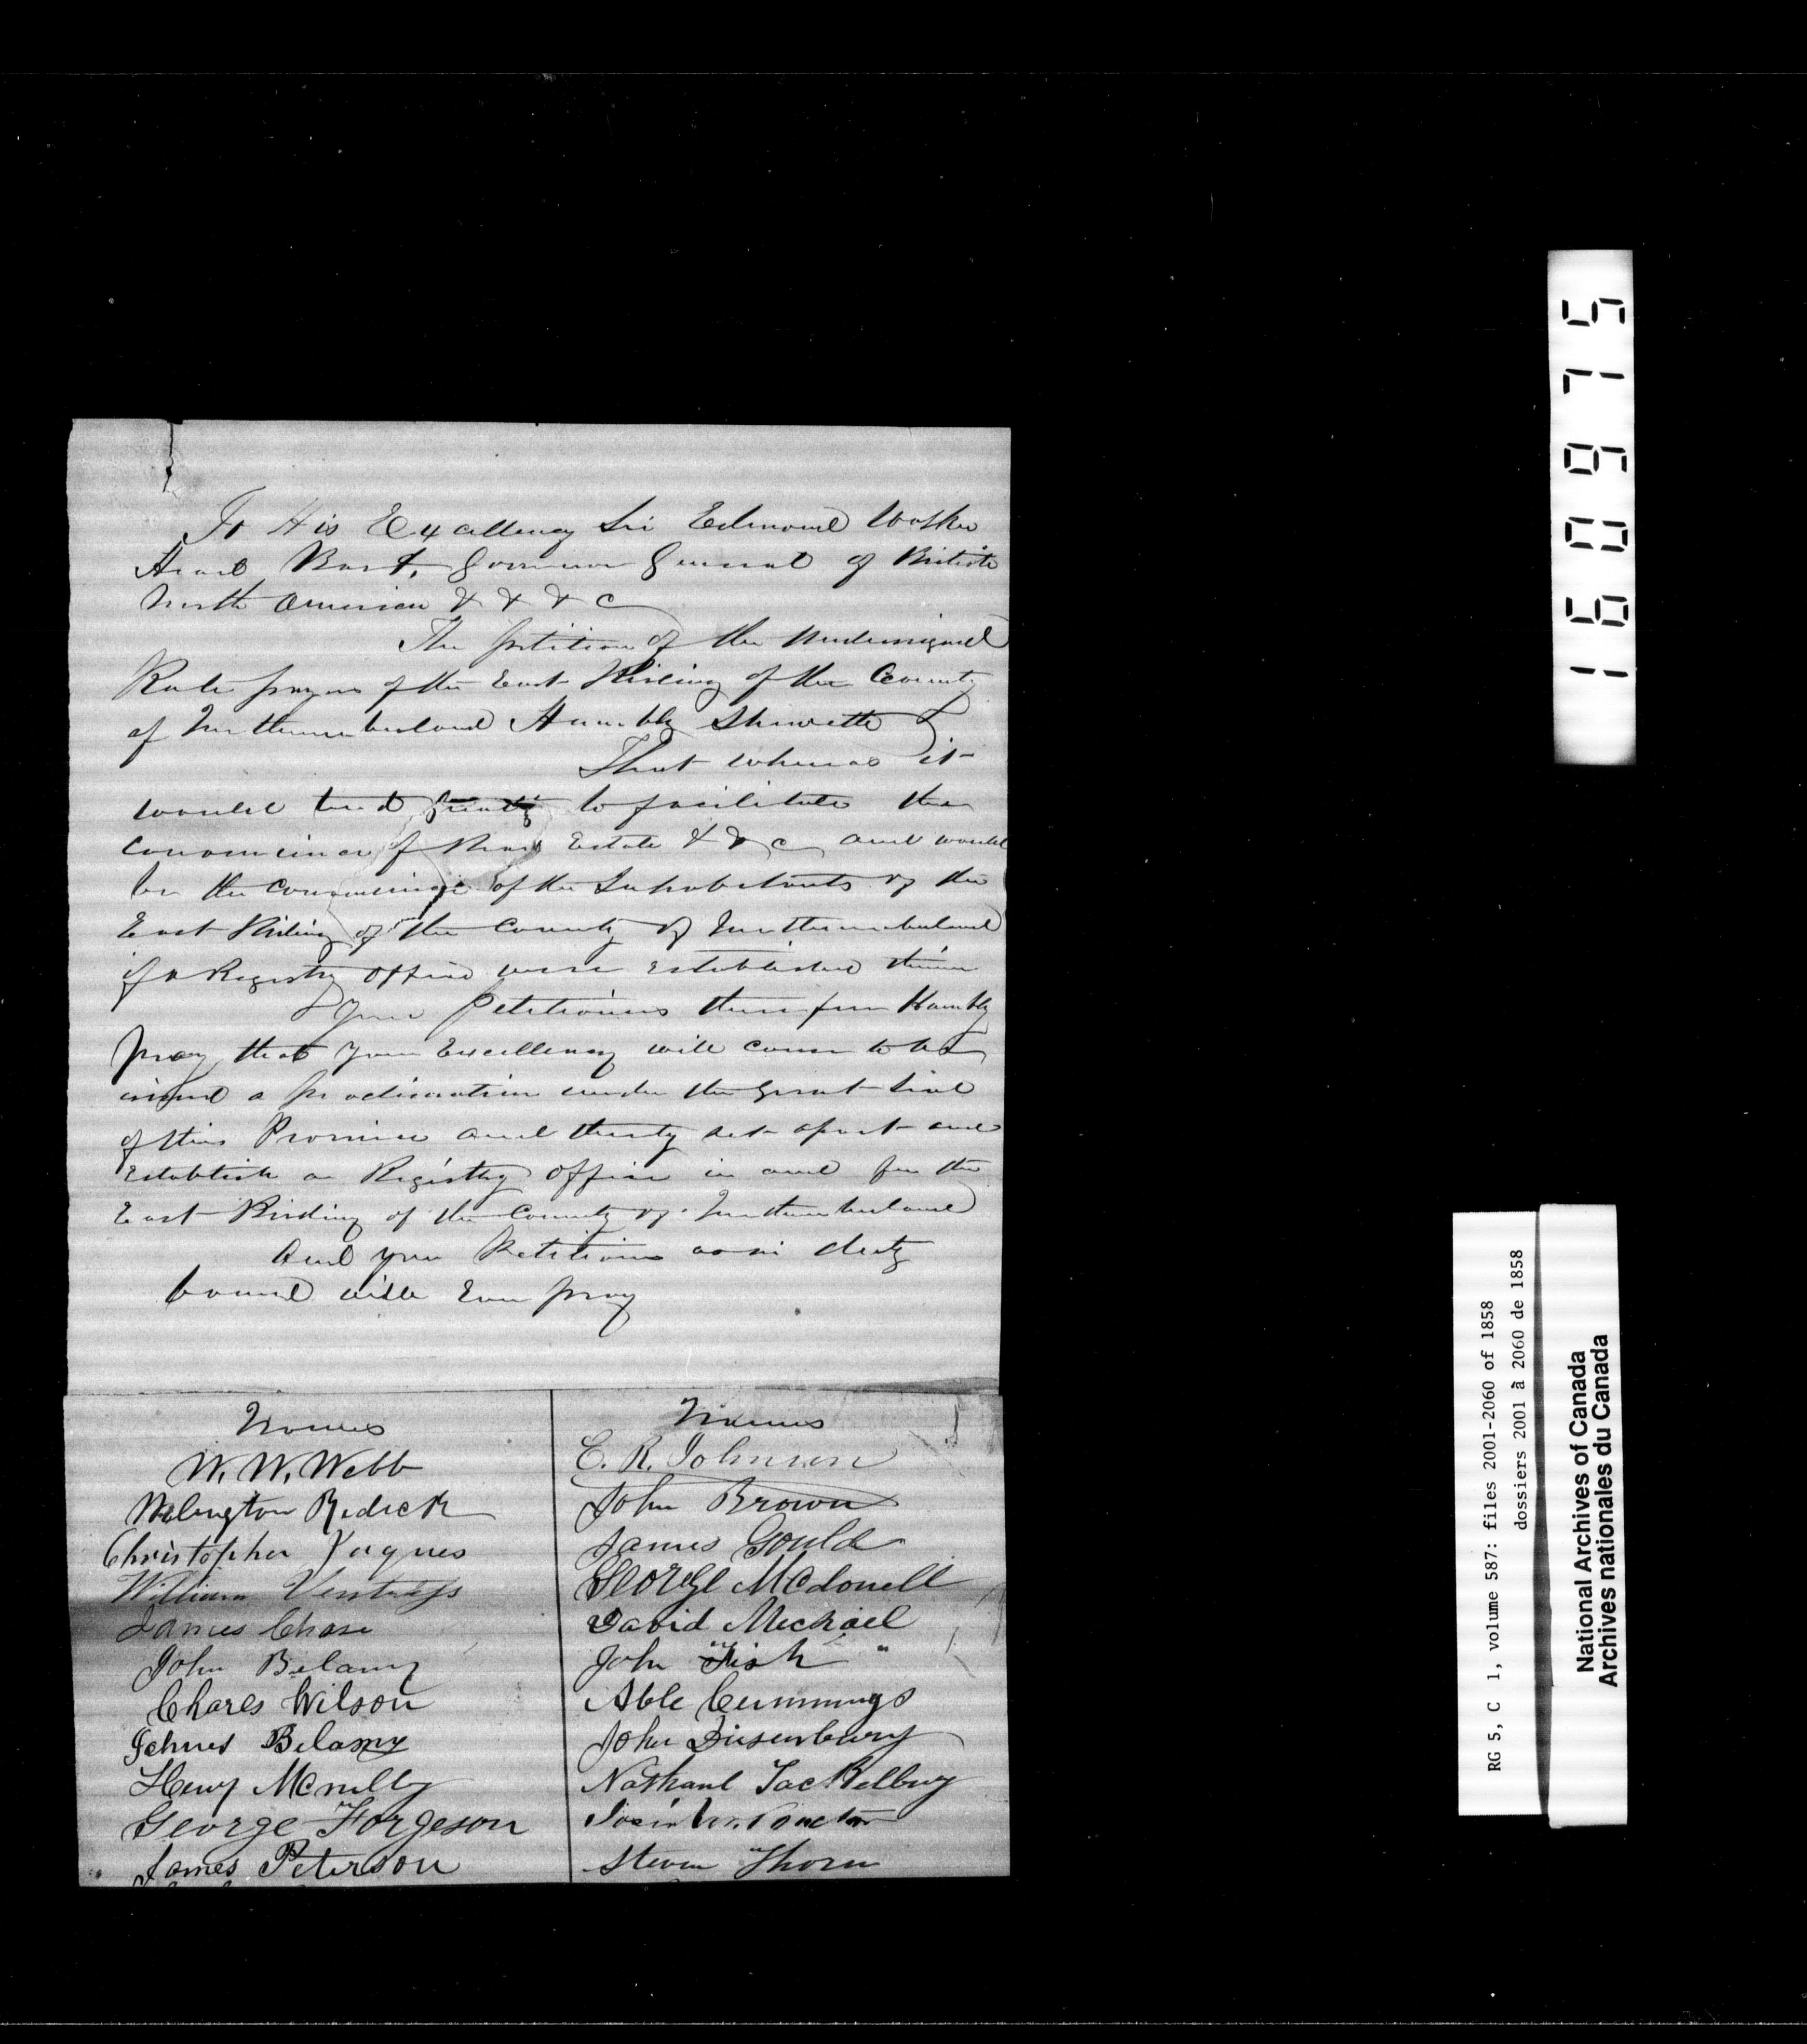 To His Excellency Sir Edmond Walker
Head Bart, Governor General of British
North American & & & c
The petition of the undersigned
Rate payers of the East Riding of the County
of Northumberland Humbly Sheweth
That whereas it
would tend greatly to facilitate the
Conveniance of Real Estate & & c and would
be the Convenience of the Inhabitants of the
East Riding of the County of Northumberland
if a Registry office were Established therein
Your Petitioners therefore Humbly
pray that Your Excellency will cause to be
issued a proclamation under the Great Seal
of this Province and thereby set apart and
Establish a Registry office in and for the
East Riding of the County of Northumberland
And your Petitioners as in duty
bound will Ever pray
Names
W. W. Webb
Welington Redick
Christopher
William
James Chase
John Belamy
Chares Wilson
Belamy
Henry
George Forgeson
James Peterson
Names
E. R. Johnson
John Brown
James Gould
George McDonell
David Mechael
John Fish
Able Cummings
John Dusenbery
Steven Thorn
160975
RG 5, C 1, volume 587: files 2001-2060 of 1858
dossiers 2001 à 2060 de 1858
National Archives of Canada
Archives nationales du Canada